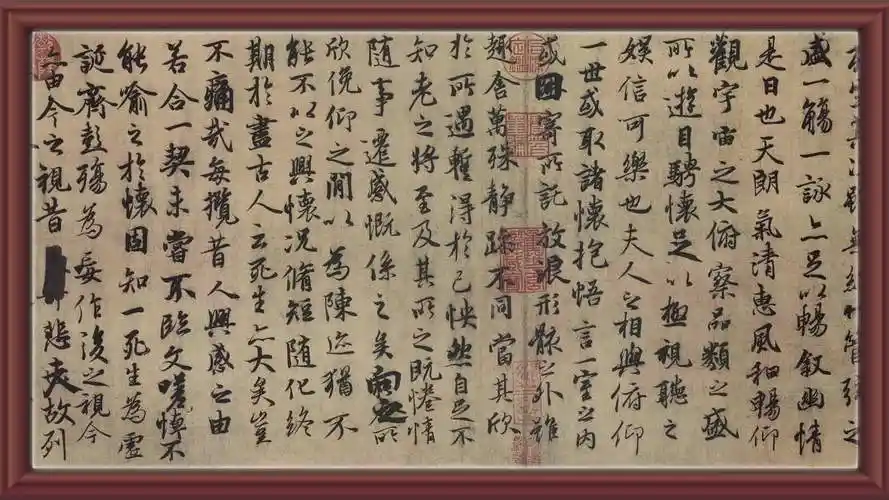 雖無絲竹管弦之
盛一觴一詠亦足以暢敘幽情
是日也天朗氣清惠風和暢仰
觀宇宙之大俯察品類之盛
所以遊目騁懷足以極視聽之
娛信可樂也夫人之相與俯仰
一世或取諸懷抱悟言一室之內
或因寄所託放浪形骸之外雖
趣舍萬殊靜躁不同當其欣
於所遇蹔得於己怏然自足不
知老之將至及其所之既惓情
隨事遷感慨係之矣向之所
欣俛仰之閒以為陳迹猶不
能不以之興懷況脩短隨化終
期於盡古人云死生亦大矣豈
不痛哉每攬昔人興感之由
若合一契未嘗不臨文嗟悼不
能喻之於懷固知一死生為虛
誕齊彭殤為妄作後之視今
亦由今之視昔悲夫故列